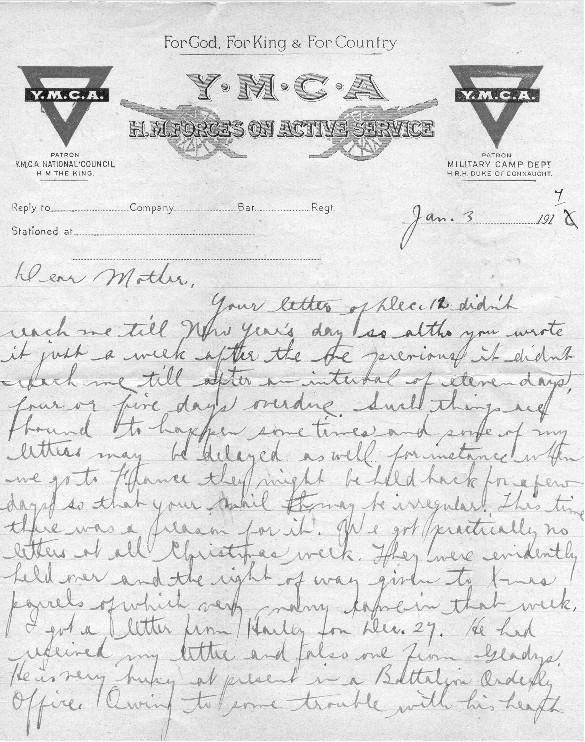 For God, For King & For Country
Y·M·C·A
H.M. FORCES ON ACTIVE SERVICE
Y.M.C.A.
PATRON
Y.M.C.A. NATIONAL COUNCIL
H M THE KING.
Y.M.C.A.
PATRON
MILITARY CAMP DEPT
H.R.H. DUKE OF CONNAUGHT.
Reply to Company Bar. Regt.
Stationed at
Jan. 3 191 7
Dear Mother,
Your letter of Dec. 12 didn't
reach me till New Year's day so altho you wrote
it just a week after the previous it didn't
reach me till after an interval of eleven days,
four or five days overdue. Such things are
bound to happen sometimes and some of my
letters may be delayed as well. for instance when
we go to France they might be held back for a few
days so that your mail may be irregular. This time
there was a reason for it. We got practically no
letters at all Christmas week. They were evidently
held over and the right of way given to Xmas
parcels of which very many came in that week.
I got a letter from Harley on Dec. 27. He had
received my letter and also one from Gladys.
He is very busy at present in a Battalion Orderly
Office. Owing to some trouble with his heath